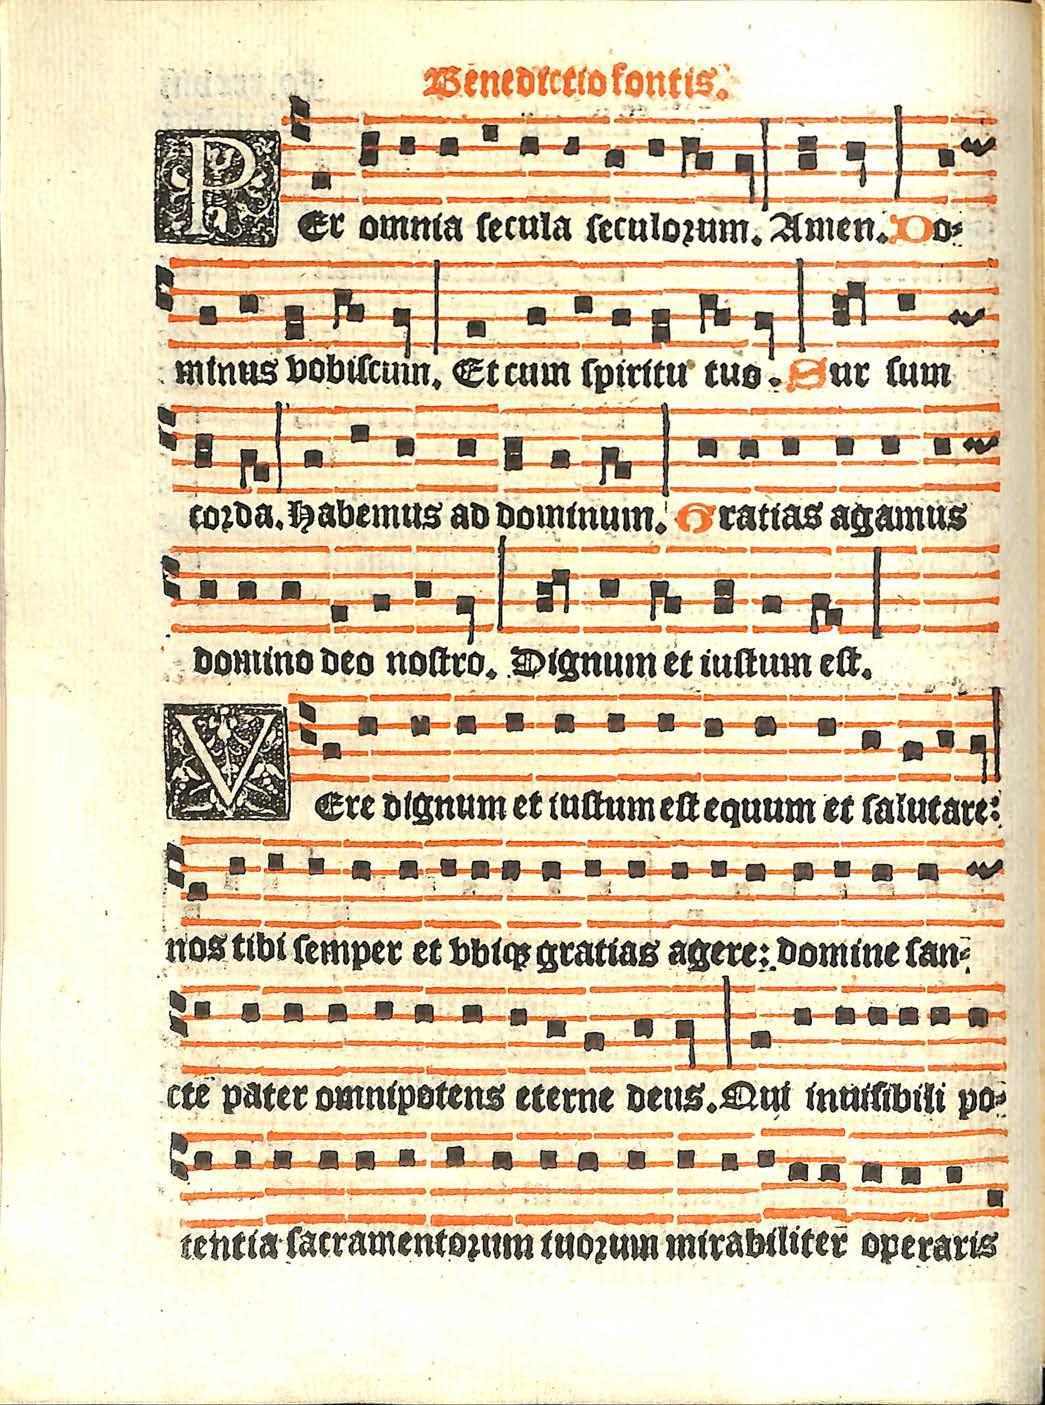 Benedictio fontis.
PEr omnia secula seculorum. Amen. Do-
minus vobiscum. Et cum spiritu tuo. Sur sum
corda. Habemus ad dominum. Gratias agamus
domino deo nostro. Dignum et iustum est.
VEre dignum et iustum est equum et salutare:
nos tibi semper et vbiqꝫ gratias agere: domine san-
cte pater omnipotens eterne deus. Qui inuisibili po-
tentia sacramentorum tuorum mirabiliter operaris